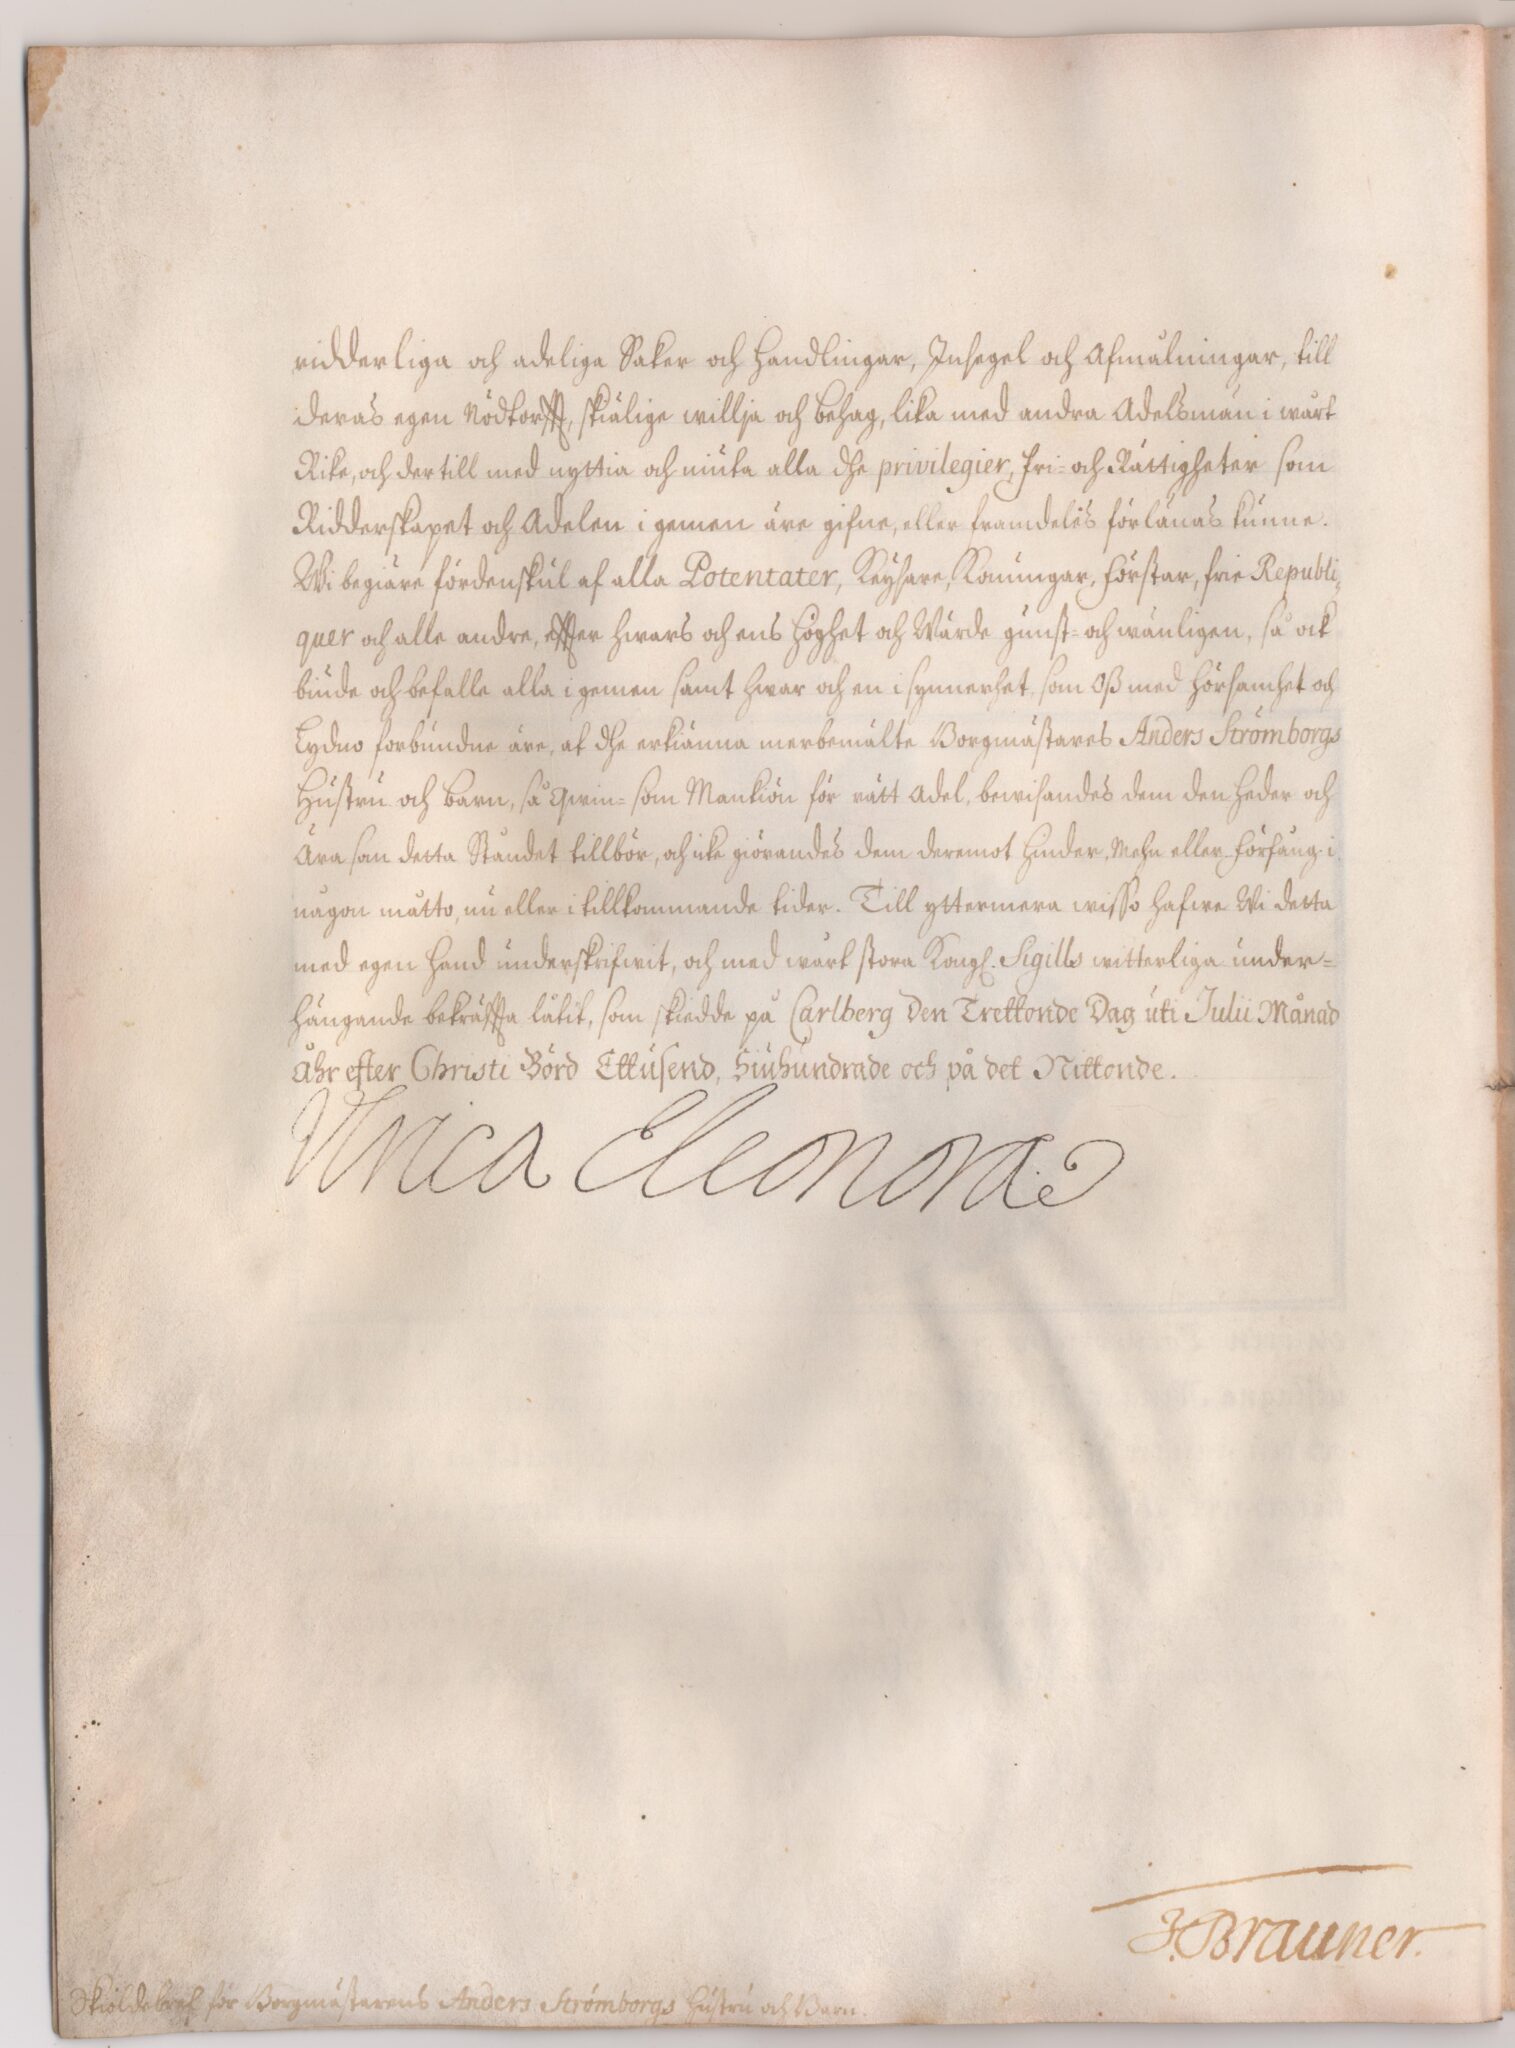 ridderliga och adeliga Saker och Handlingar, Insegel och Afmålningar, till
deras egen Nödtorfft, skiälige willja och behag, lika med andra Adelsmän i wårt
Rike, och dertill med nyttia och niuta alla dhe privilegier, fri- och Rättigheter som
Ridderskapet och Adelen i gemen äre gifne, eller framdeles förlänas kunne.
Wi begiäre fördenskul af alla Potentater, Keysare, Konungar, Förstar, frie Republi-
quer och alle andre, effter hwars och ens Höghet och Wärde gunst- och wänligen, så ock
biude och befalle alla i gemen samt hwar och en i synnerhet, som Oß med hörsamhet och
Lydno forbundne äre, at dhe erkiänna merbemälte Borgmästares Anders Strömborgs
Hustru och Barn, så Qwin- som Mankiön för rätt Adel, bewisandes dem den heder och
Ära som detta Ståndet tillbör, och icke giörandes dem deremot hinder, Mehn eller Förfång i
någon måtto, nu eller i tillkommande tider. Till yttermera wisso hafwe Wi detta
med egen Hand underskrifwit, och med wårt stora Kongl. Sigills witterliga under-
hängande bekräffta låtit, som skiedde på Carlberg Den Trettonde Dag uti Julii Månad
Åhr efter Christi Börd Ettusend, Siuhundrade och på det Nittonde.
Ulrica Eleonora
J. Brauner.
Skiöldebref för Borgmästarens Anders Strömborgs Hustru och Barn.